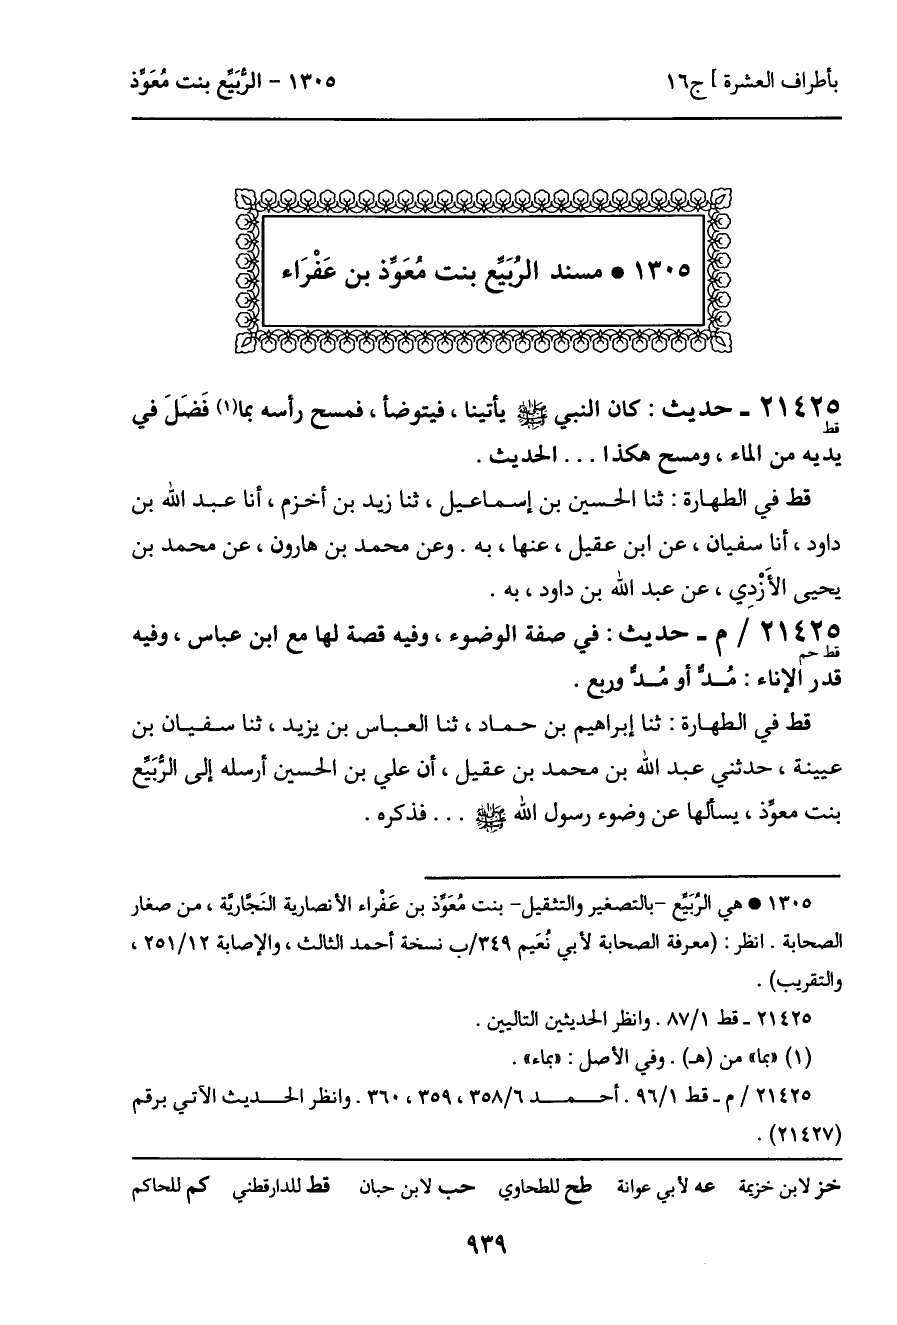 بأطراف العشرة ] ج١٦
١٣٠٥ - الرُّبَيِّع بنت مُعَوِّذ
١٣٠٥ ● مسند الرُّبَيِّع بنت مُعَوِّذ بن عَفْرَاء
٢١٤٢٥ ـ حديث : كان النبي ﷺ يأتينا ، فيتوضأ ، فمسح رأسه بما(١) فَضَلَ في
قط
يديه من الماء ، ومسح هكذا . . . الحديث .
قط في الطهارة : ثنا الحسين بن إسماعيل ، ثنا زيد بن أخزم ، أنا عبد الله بن
داود ، أنا سفيان ، عن ابن عقيل ، عنها ، به . وعن محمد بن هارون ، عن محمد بن
يحيى الأَزْدِي ، عن عبد الله بن داود ، به .
٢١٤٢٥ / م ـ حديث : في صفة الوضوء ، وفيه قصة لها مع ابن عباس ، وفيه
قط حم
قدر الإناء : مُدٌّ أو مُدٌّ وربع .
قط في الطهارة : ثنا إبراهيم بن حماد ، ثنا العباس بن يزيد ، ثنا سفيان بن
عيينة ، حدثني عبد الله بن محمد بن عقيل ، أن علي بن الحسين أرسله إلى الرُّبَيِّع
بنت معوِّذ ، يسألها عن وضوء رسول الله ﷺ . . . فذكره .
١٣٠٥ ● هي الرُّبَيِّع -بالتصغير والتثقيل- بنت مُعَوِّذ بن عَفْراء الأنصارية النَجَّاريَّة ، من صغار
الصحابة . انظر : (معرفة الصحابة لأبي نُعَيم ٣٤٩/ب نسخة أحمد الثالث ، والإصابة ٢٥١/١٢ ،
والتقريب) .
٢١٤٢٥ ـ قط ٨٧/١ . وانظر الحديثين التاليين .
(١) «بما» من (هـ) . وفي الأصل : «بماء» .
٢١٤٢٥ / م ـ قط ٩٦/١ . أحمد ٣٥٨/٦ ، ٣٥٩ ، ٣٦٠ . وانظر الحديث الآتي برقم
(٢١٤٢٧) .
خز لابن خزيمة عه لأبي عوانة طح للطحاوي حب لابن حبان قط للدارقطني كم للحاكم
٩٣٩